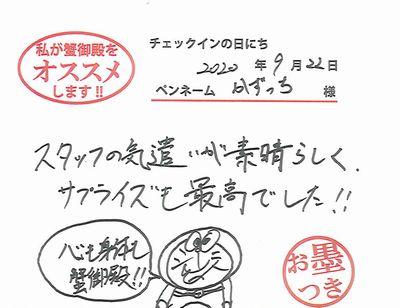 私が蟹御殿を
オススメ
します!!
チェックインの日にち
2020 年 9 月 22 日
ペンネーム かずっち 様
スタッフの気遣いが素晴らしく、
サプライズも最高でした!!
心も身体も
蟹御殿!!
お墨
つき